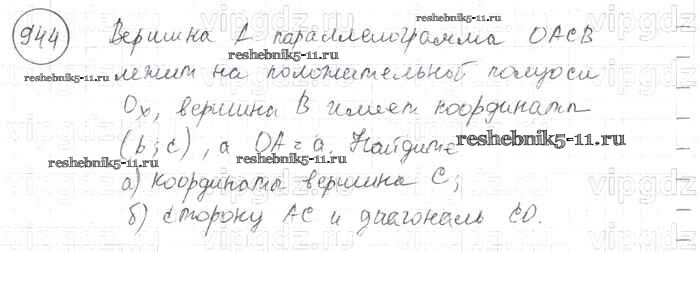 944 Вершина А параллелограмма OACB
лежит на положительной полуоси
Ox, вершина B имеет координаты
(b; c), а OA = a. Найдите
а) координаты вершина C;
б) сторону AC и диагональ CO.
reshebnik5-11.ru
reshebnik5-11.ru
reshebnik5-11.ru
reshebnik5-11.ru
reshebnik5-11.ru
reshebnik5-11.ru
vipgdz
vipgdz
vipgdz
vipgdz